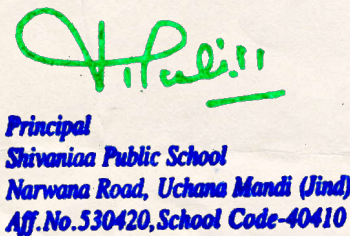 Principal
Shivaniaa Public School
Narwana Road, Uchana Mandi (Jind)
Aff.No.530420,School Code-40410